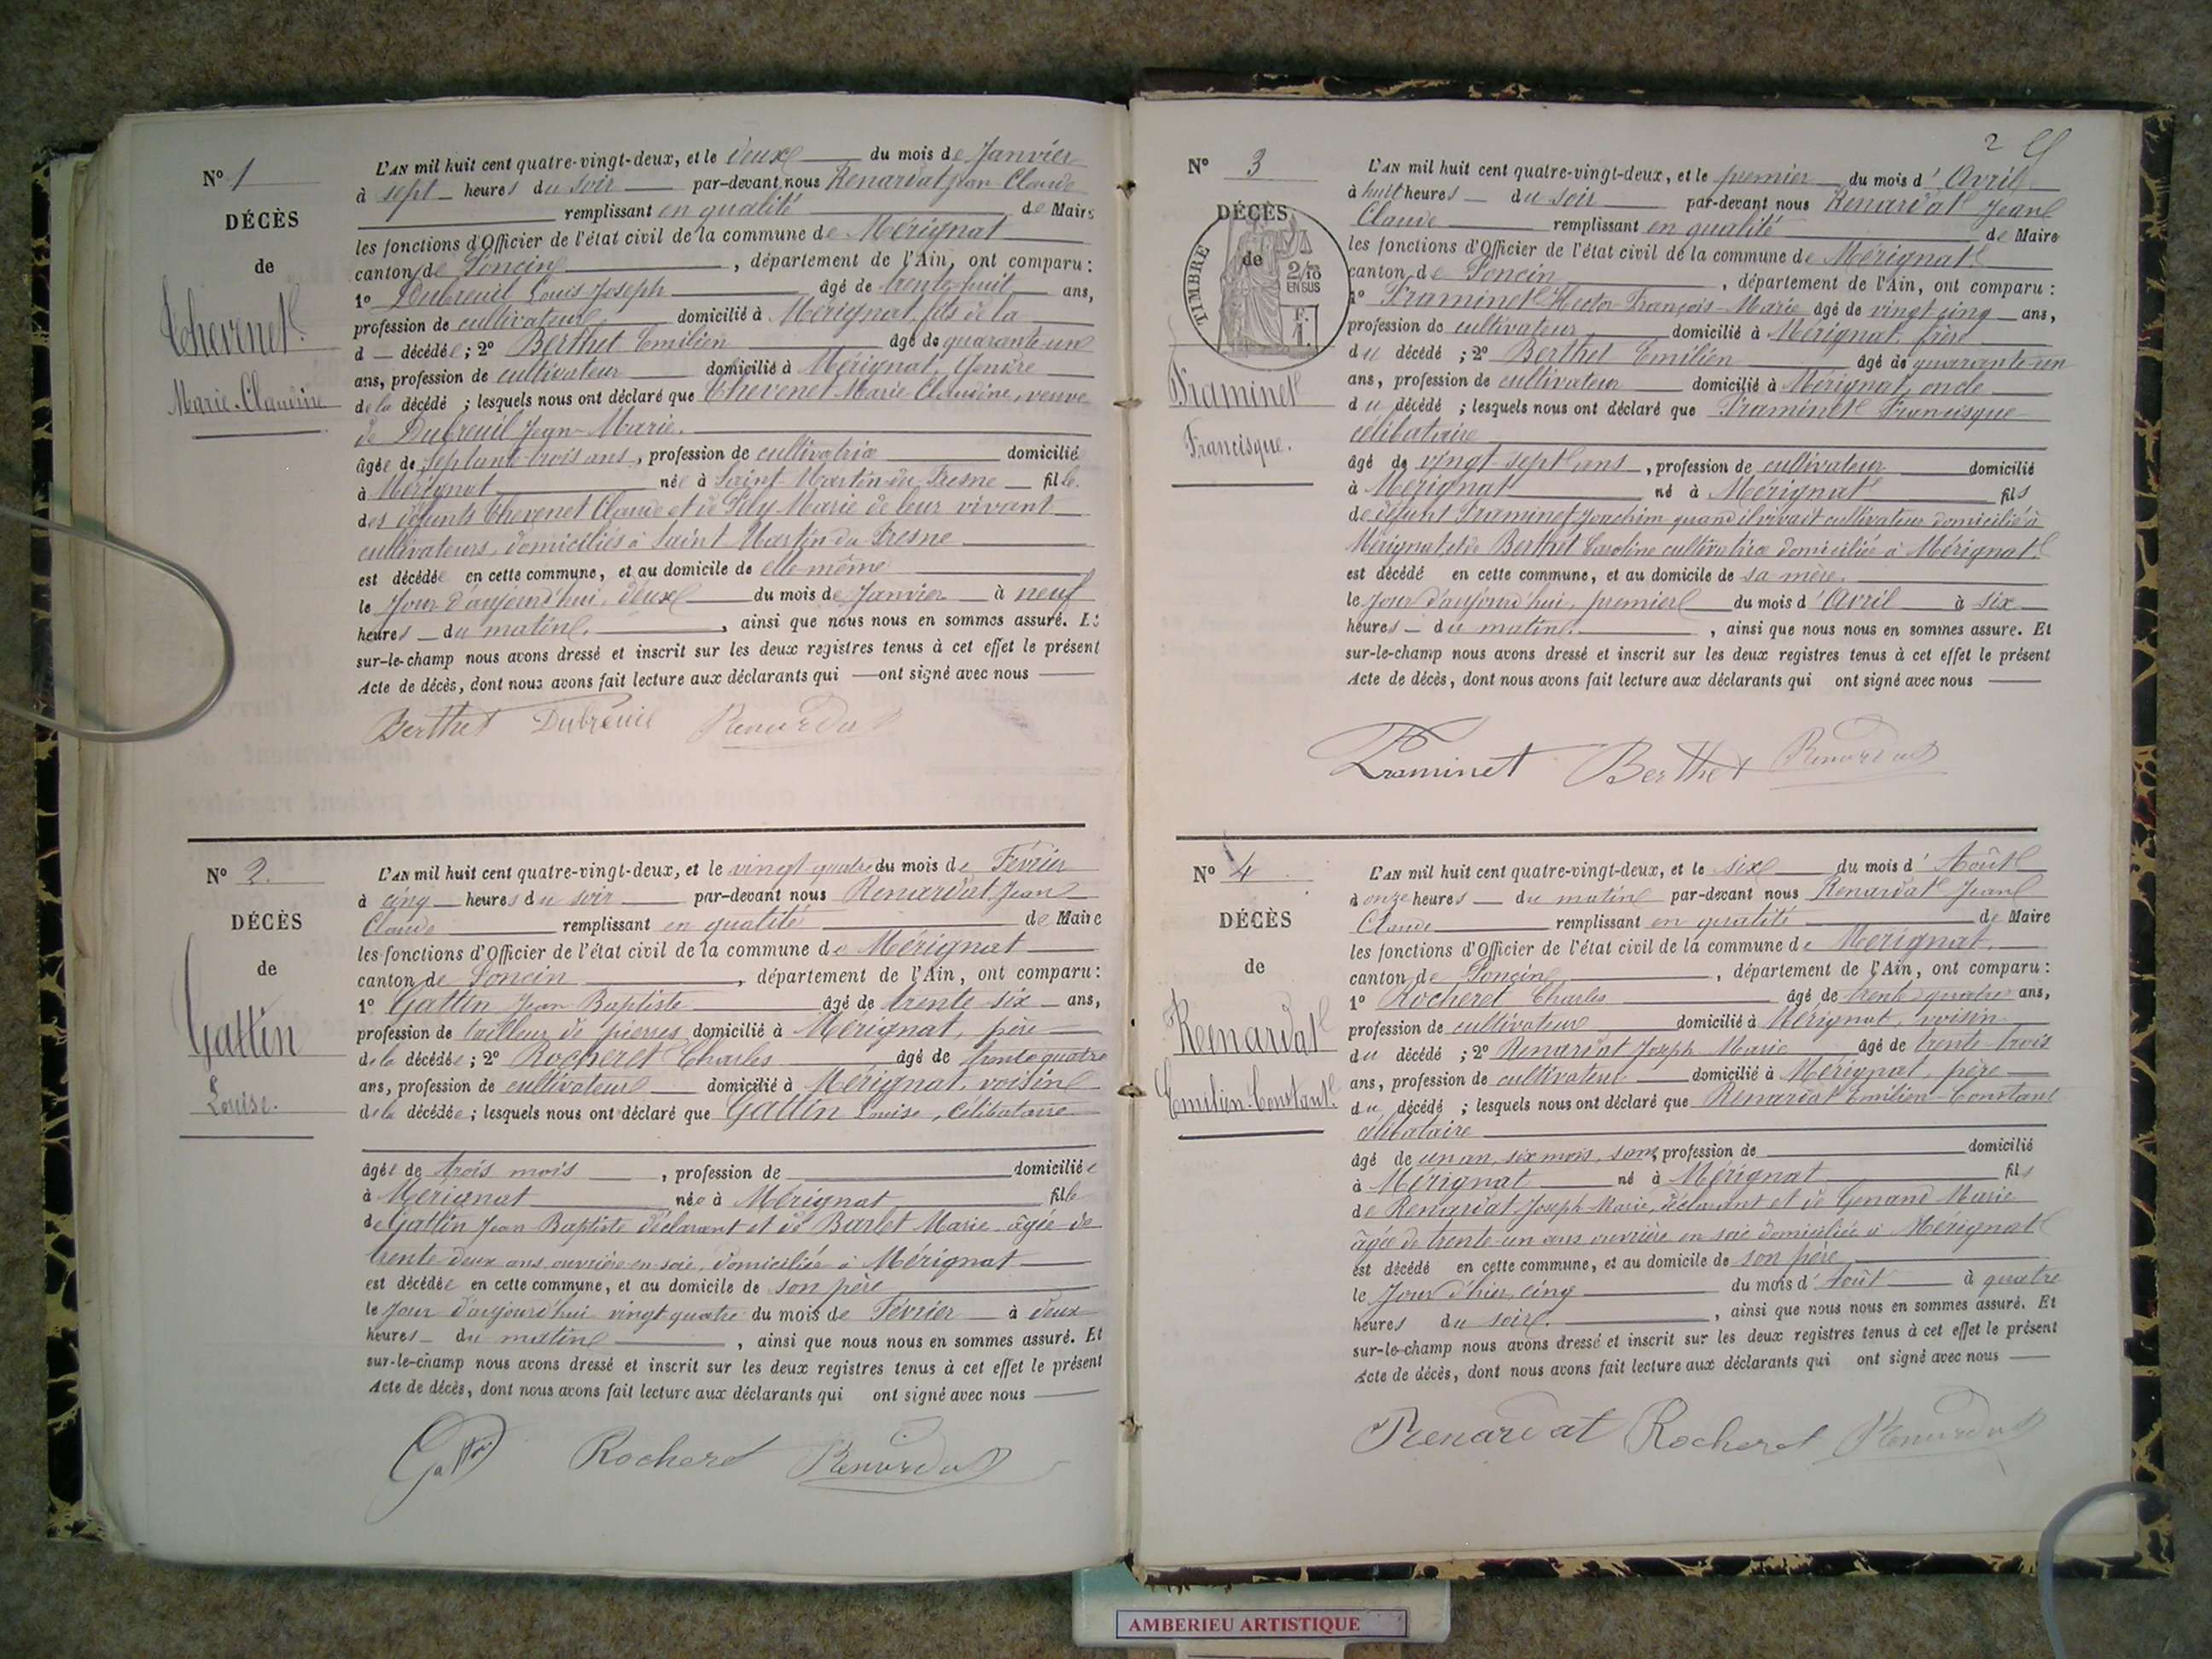 N° 1
DÉCÈS
de
Thevenet
Marie-Claudine
L'AN mil huit cent quatre-vingt-deux, et le deux du mois de Janvier
à sept heures du soir par-devant nous Renardat Jean Claude
remplissant en qualité de Maire
les fonctions d'Officier de l'état civil de la commune de Mérignat
canton de Poncin, département de l'Ain, ont comparu :
1° Dubreuil Louis Joseph âgé de trente-huit ans,
profession de cultivateur domicilié à Mérignat, fils de la
d décédée ; 2° Berthet Emilien âgé de quarante-un
ans, profession de cultivateur domicilié à Mérignat, Gendre
de la décédé ; lesquels nous ont déclaré que Thevenet Marie Claudine, veuve
de Dubreuil Jean-Marie.
âgée de septante-trois ans, profession de cultivatrice domicilié
à Mérignat née à Saint Martin-du-Fresne fille
des défunts Thevenet Claude et de Marie de leur vivant
cultivateurs, domiciliés à Saint Martin du Fresne
est décédée en cette commune, et au domicile de elle-même
le Jour d'aujourd'hui, deux du mois de Janvier à neuf
heures du matin, ainsi que nous nous en sommes assuré. Et
sur-le-champ nous avons dressé et inscrit sur les deux registres tenus à cet effet le présent
Acte de décès, dont nous avons fait lecture aux déclarants qui ont signé avec nous
Berthet Dubreuil Renardat
N° 2.
DÉCÈS
de
Gattin
Louise.
L'AN mil huit cent quatre-vingt-deux, et le vingt-quatre du mois de Février
à cinq heures du soir par-devant nous Renardat Jean
Claude remplissant en qualité de Maire
les fonctions d'Officier de l'état civil de la commune de Mérignat
canton de Poncin, département de l'Ain, ont comparu :
1° Gattin Jean Baptiste âgé de trente-six ans,
profession de tailleur de pierres domicilié à Mérignat, père
de la décédée ; 2° Rocheret Charles âgé de trente quatre
ans, profession de cultivateur domicilié à Mérignat, voisin
de la décédée ; lesquels nous ont déclaré que Gattin Louise, célibataire
âgée de trois mois, profession de domiciliée
à Mérignat née à Mérignat fille
de Gattin Jean Baptiste déclarant et de Barlet Marie âgée de
trente-deux ans ouvrière en soie, domiciliée à Mérignat
est décédée en cette commune, et au domicile de son père
le Jour d'aujourd'hui vingt-quatre du mois de Février à deux
heures du matin, ainsi que nous nous en sommes assuré. Et
sur-le-champ nous avons dressé et inscrit sur les deux registres tenus à cet effet le présent
Acte de décès, dont nous avons fait lecture aux déclarants qui ont signé avec nous
Rocheret Renardat
2
N° 3
DÉCÈS
de
TIMBRE
2/10
EN SUS
F.
1.
Traminet
Francisque.
L'AN mil huit cent quatre-vingt-deux, et le premier du mois d'Avril
à huit heures du soir par-devant nous Renardat Jean
Claude remplissant en qualité de Maire
les fonctions d'Officier de l'état civil de la commune de Mérignat
canton de Poncin, département de l'Ain, ont comparu :
1° Traminet Hector-François-Marie âgé de vingt cinq ans,
profession de cultivateur domicilié à Mérignat, frère
du décédé ; 2° Berthet Emilien âgé de quarante-un
ans, profession de cultivateur domicilié à Mérignat, oncle
du décédé ; lesquels nous ont déclaré que Traminet Francisque
célibataire
âgé de vingt-sept ans, profession de cultivateur domicilié
à Mérignat né à Mérignat fils
de défunt Traminet Joachim quand il vivait cultivateur domicilié à
Mérignat et de Berthet Caroline cultivatrice domiciliée à Mérignat
est décédé en cette commune, et au domicile de sa mère.
le Jour d'aujourd'hui, premier du mois d'Avril à six
heures du matin, ainsi que nous nous en sommes assuré. Et
sur-le-champ nous avons dressé et inscrit sur les deux registres tenus à cet effet le présent
Acte de décès, dont nous avons fait lecture aux déclarants qui ont signé avec nous
Traminet Berthet Renardat
N° 4
DÉCÈS
de
Renardat
Emilien-Constant.
L'AN mil huit cent quatre-vingt-deux, et le six du mois d'Août
à onze heures du matin par-devant nous Renardat Jean
Claude remplissant en qualité de Maire
les fonctions d'Officier de l'état civil de la commune de Mérignat,
canton de Poncin, département de l'Ain, ont comparu :
1° Rocheret Charles âgé de trente quatre ans,
profession de cultivateur domicilié à Mérignat, voisin
du décédé ; 2° Renardat Joseph Marie âgé de trente-trois
ans, profession de cultivateur domicilié à Mérignat, père
du décédé ; lesquels nous ont déclaré que Renardat Emilien-Constant
célibataire
âgé de un an, six mois, sans profession de domicilié
à Mérignat né à Mérignat fils
de Renardat Joseph Marie, déclarant et de Genand Marie
âgée de trente-un ans ouvrière en soie domiciliée à Mérignat
est décédé en cette commune, et au domicile de son père
le Jour d'hier, cinq du mois d'Août à quatre
heures du soir, ainsi que nous nous en sommes assuré. Et
sur-le-champ nous avons dressé et inscrit sur les deux registres tenus à cet effet le présent
Acte de décès, dont nous avons fait lecture aux déclarants qui ont signé avec nous
Renardat Rocheret Renardat
AMBERIEU ARTISTIQUE